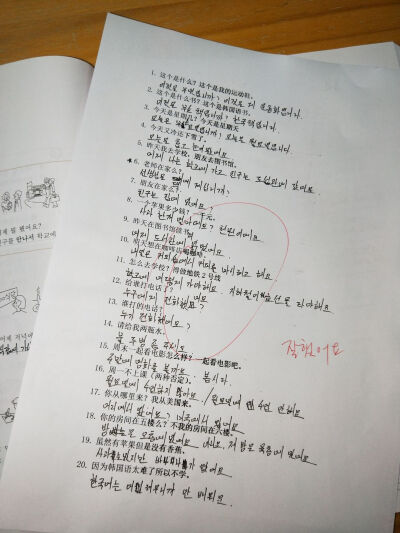 1. 这个是什么？这个是我的运动鞋。
이것은 무엇입니까? 이것은 제 운동화입니다.
2. 这个是什么书？这个是韩国语书。
이것은 무슨 책입니까? 한국책입니다.
3. 今天是星期几？今天是星期天
오늘은 요일입니까? 오늘은 일요일입니다.
4. 今天又冷还下雪了。
오늘은 춥고 눈이 왔어요.
5. 昨天我去学校，朋友去图书馆。
어제 나는 학교에 가고 친구는 도서관에 갔어요.
6. 老师在家么？
선생님은 집에 계십니까?
7. 朋友在家么？
친구는 집에 있어요?
8. 一个苹果多少钱？一千元。
사과 한개 얼마예요? 천원이에요
9. 昨天在图书馆读书
어제 도서관에 읽었어요.
10. 明天想在咖啡店喝咖啡。
내일은 커피숍에서 커피를 마시고 해요
11. 怎么去学校？得做地铁2号线
학교에 어떻게 가야해요. 지하철 이호선을 타야해요
12. 给谁打电话了？
누구에게 전화했요?
13. 谁打的电话？
누가 전화했어요?
14. 请给我两瓶水。
물 두병 주세요
15. 周末一起看电影怎么样？一起看电影吧。
주말에 영화를 볼까요 봅시다.
16. 周一不上课（两种否定）。
월요일에 수업하지 않아요. / 월요일에 수업 안해요
17. 你从哪里来？我从美国来。
어디에서 왔어요? 미국에서 왔어요
18. 你的房间在五楼么？不我的房间在六楼。
방은 오층에 있어요 아니요. 제 방은 육층에 있어요
19. 虽然有苹果但是没有香蕉。
사과 있지만 바나나가 없어요
20. 因为韩国语太难了所以不学。
한국어는 어려워서 안 배워요
잘했어요